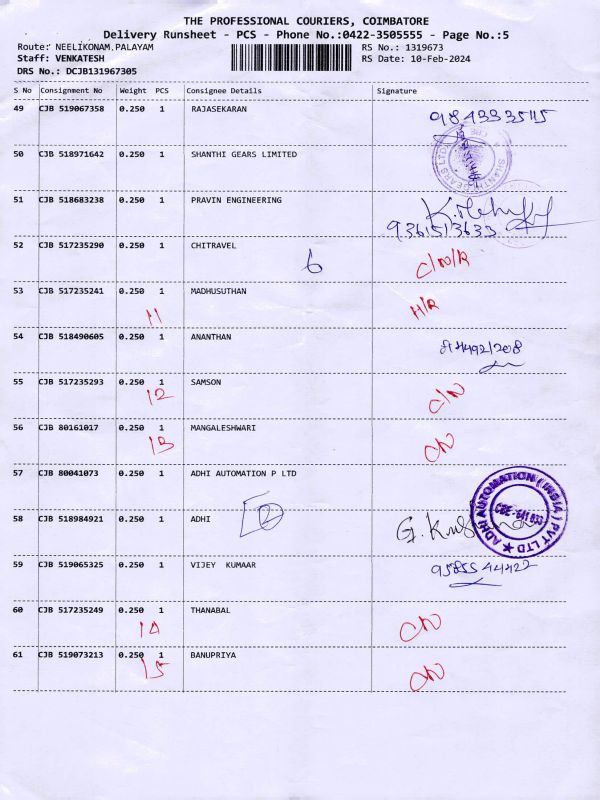 THE PROFESSIONAL COURIERS, COIMBATORE
Delivery Runsheet - PCS - Phone No.:0422-3505555 - Page No.:5
Route: NEELIKONAM,PALAYAM RS No.: 1319673
Staff: VENKATESH RS Date: 10-Feb-2024
DRS No.: DCJB131967305
S No Consignment No Weight PCS Consignee Details Signature
49 CJB 519067358 0.250 1 RAJASEKARAN
50 CJB 518971642 0.250 1 SHANTHI GEARS LIMITED
51 CJB 518683238 0.250 1 PRAVIN ENGINEERING
9361513633
52 CJB 517235290 0.250 1 CHITRAVEL
6 C/N/R
53 CJB 517235241 0.250 1 MADHUSUTHAN
11 H/R
54 CJB 518490605 0.250 1 ANANTHAN
55 CJB 517235293 0.250 1 SAMSON
12 C/N
56 CJB 80161017 0.250 1 MANGALESHWARI
13 CN
57 CJB 80041073 0.250 1 ADHI AUTOMATION P LTD
ADHI AUTOMATION (INDIA) PVT LTD
CBE - 641 033
58 CJB 518984921 0.250 1 ADHI
2
59 CJB 519065325 0.250 1 VIJEY KUMAAR
95855 44422
60 CJB 517235249 0.250 1 THANABAL
14 CN
61 CJB 519073213 0.250 1 BANUPRIYA
15 CN